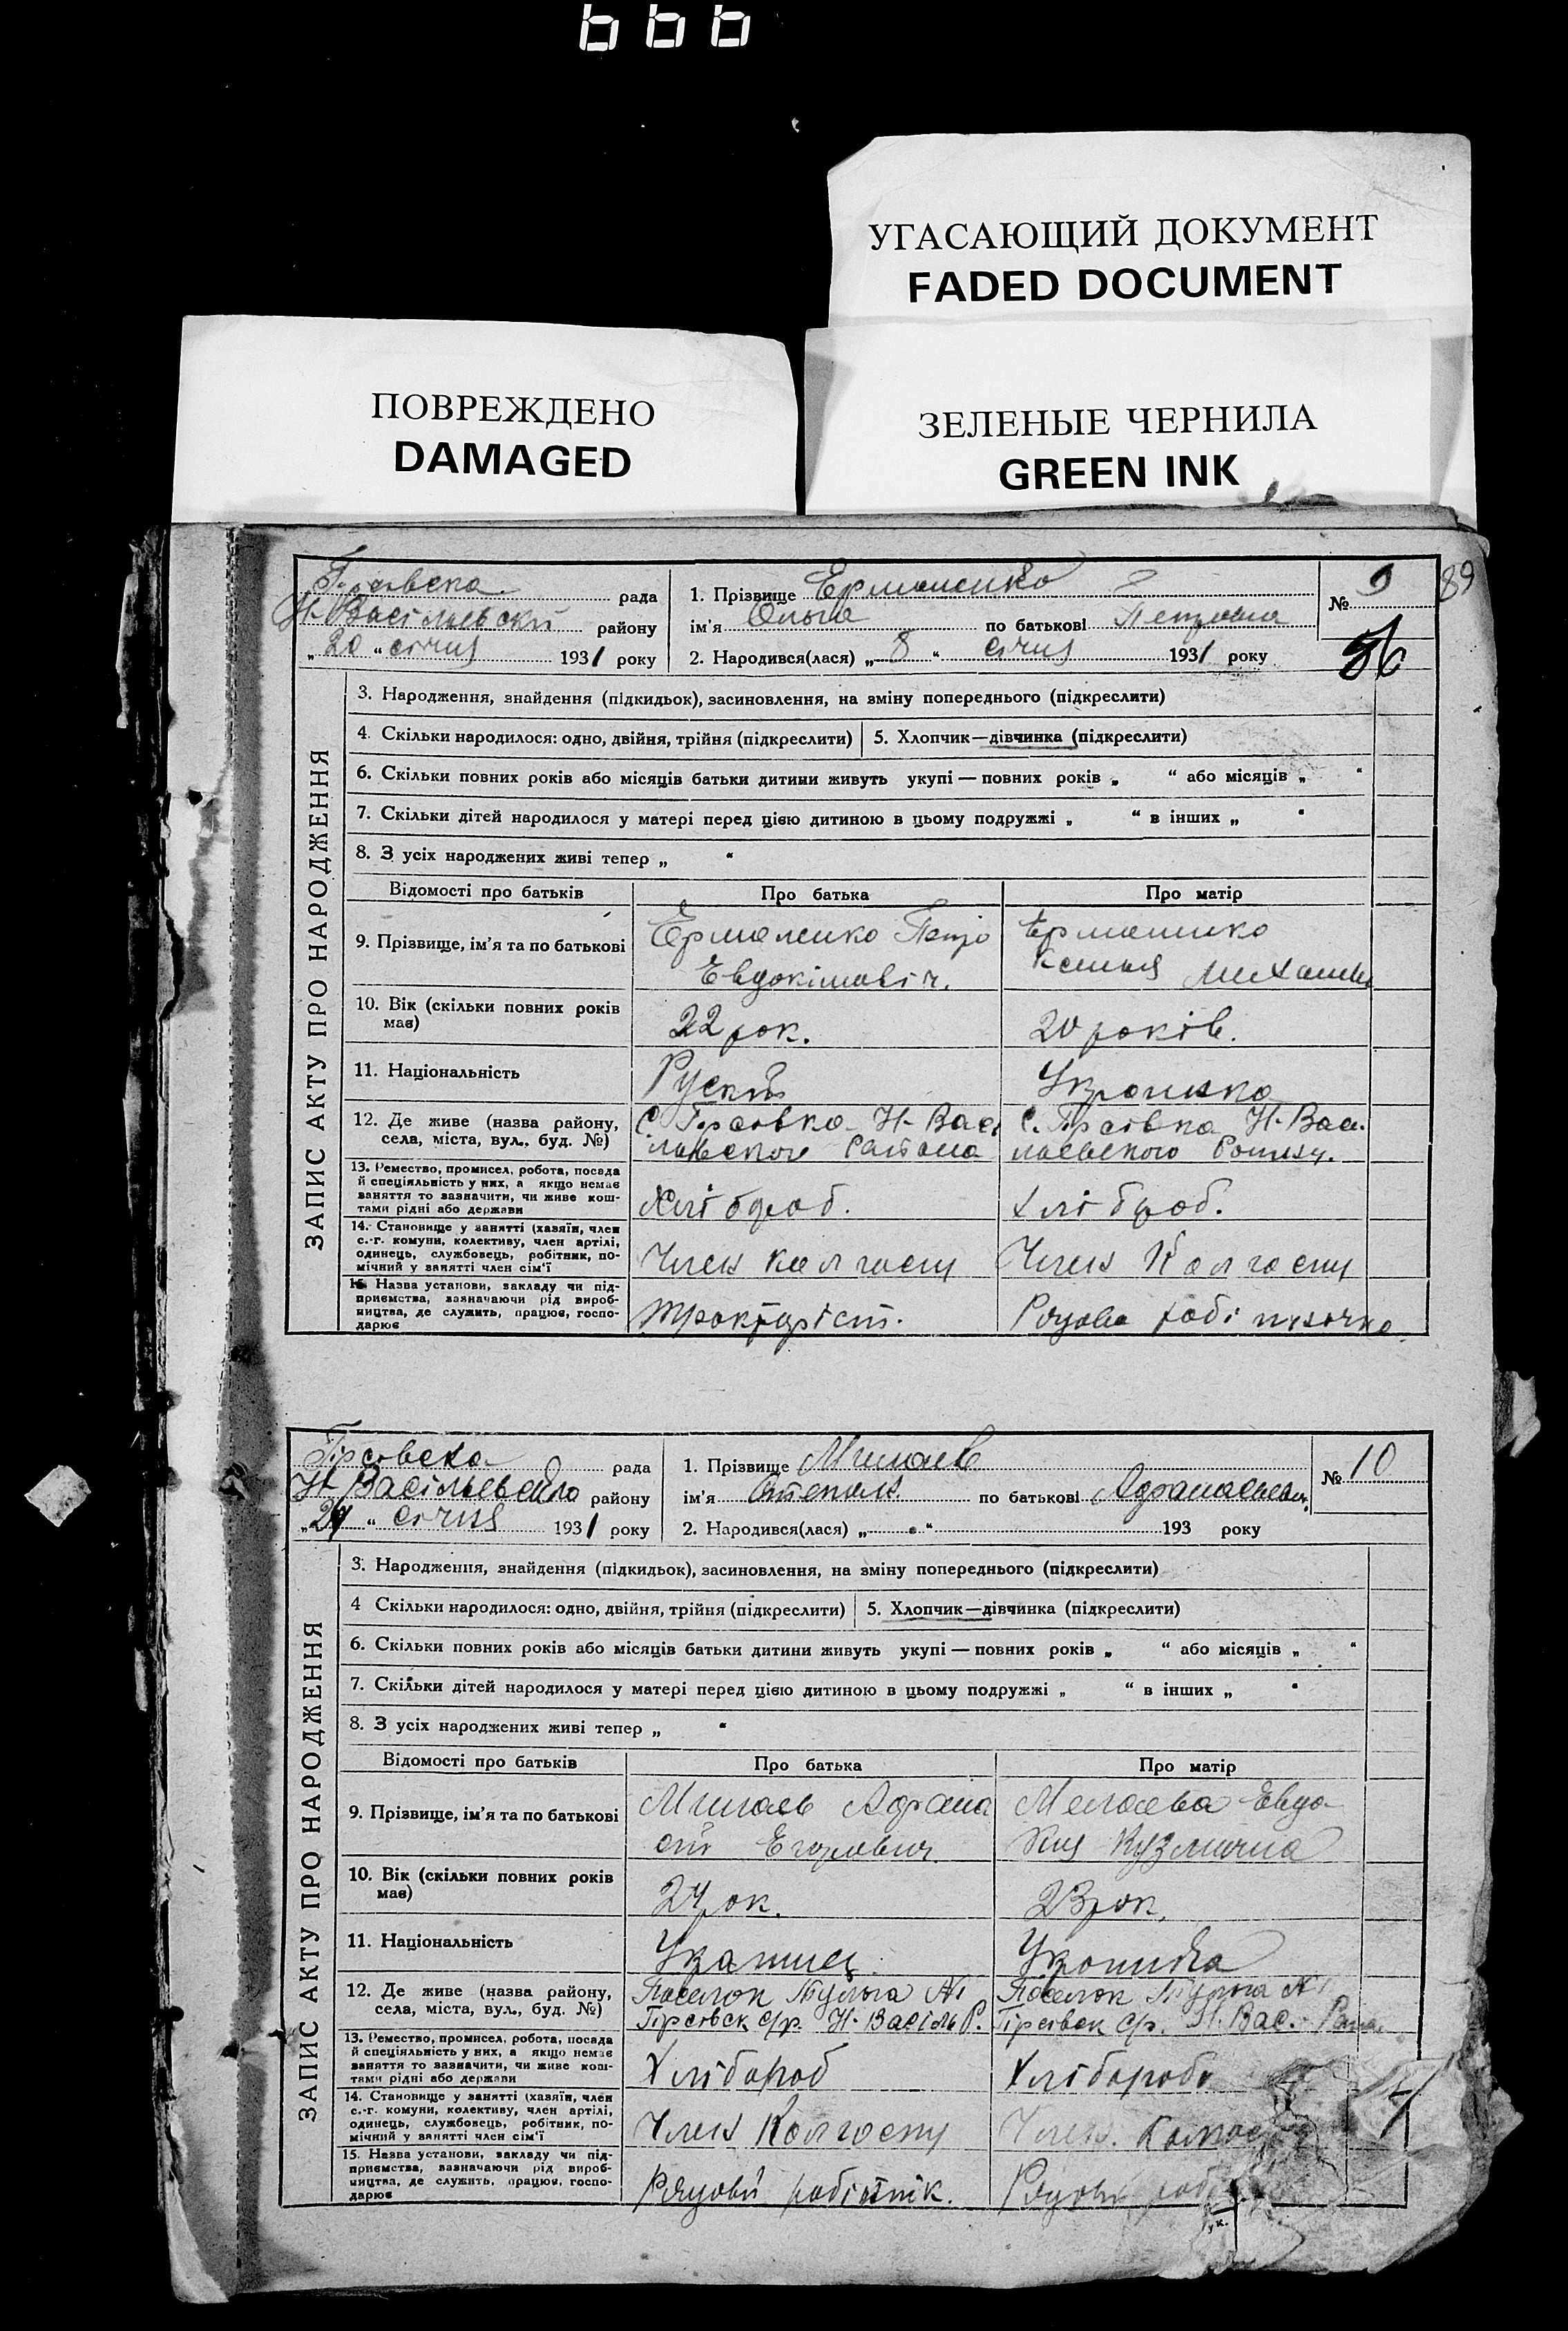 666
УГАСАЮЩИЙ ДОКУМЕНТ
FADED DOCUMENT
ПОВРЕЖДЕНО
DAMAGED
ЗЕЛЕНЫЕ ЧЕРНИЛА
GREEN INK
89
рада
Н-Васільевский району
„20“ січня 1931 року
1. Прізвище Ермаленко
ім’я Ольга по батькові Петровна
2. Народився(лася) „8“ січня 1931 року
№ 9
86
ЗАПИС АКТУ ПРО НАРОДЖЕННЯ
3. Народження, знайдення (підкидьок), засиновлення, на зміну попереднього (підкреслити)
4. Скільки народилося: одно, двійня, трійня (підкреслити) 5. Хлопчик—дівчинка (підкреслити)
6. Скільки повних років або місяців батьки дитини живуть укупі — повних років „ “ або місяців „ “
7. Скільки дітей народилося у матері перед цією дитиною в цьому подружжі „ “ в інших „ “
8. З усіх народжених живі тепер „ “
Відомості про батьків Про батька Про матір
9. Прізвище, ім’я та по батькові
Ермаленко Петро
Евдокімовіч.
Ксенья
10. Вік (скільки повних років
має)
22 рок.
20 років.
11. Національність
Руский
Украинка
12. Де живе (назва району,
села, міста, вул., буд. №)
13. Ремество, промисел, робота, посада
й спеціяльність у них, а якщо немає
заняття то зазначити, чи живе кош-
тами рідні або держави
Хлібороб.
Хлібороб.
14. Становище у занятті (хазяїн, член
с.-г. комуни, колективу, член артілі,
одинець, службовець, робітник, по-
мічний у занятті член сім’ї
Член колгоспу
Член Колгоспу
15. Назва установи, закладу чи під-
приємства, зазначаючи рід вироб-
ництва, де служить, працює, госпо-
дарює
Трактуріст.
рада
Н-Васільевского району
„24“ січня 1931 року
1. Прізвище
ім’я Степан по батькові
2. Народився(лася) „ “ 193 року
№ 10
ЗАПИС АКТУ ПРО НАРОДЖЕННЯ
3. Народження, знайдення (підкидьок), засиновлення, на зміну попереднього (підкреслити)
4 Скільки народилося: одно, двійня, трійня (підкреслити) 5. Хлопчик—дівчинка (підкреслити)
6. Скільки повних років або місяців батьки дитини живуть укупі — повних років „ “ або місяців „ “
7. Скільки дітей народилося у матері перед цією дитиною в цьому подружжі „ “ в інших „ “
8. З усіх народжених живі тепер „ “
Відомості про батьків Про батька Про матір
9. Прізвище, ім’я та по батькові
Егорович
Евдо-
кия Кузминна
10. Вік (скільки повних років
має)
24 рок.
23 рок.
11. Національність
12. Де живе (назва району,
села, міста, вул., буд. №)
Поселок
Поселок
13. Ремество, промисел, робота, посада
й спеціяльність у них, а якщо немає
заняття то зазначити, чи живе кош-
тами рідні або держави
Хлібороб
14. Становище у занятті (хазяїн, член
с.-г. комуни, колективу, член артілі,
одинець, службовець, робітник, по-
мічний у занятті член сім’ї
Член Колгоспу
Член.
15. Назва установи, закладу чи під-
приємства, зазначаючи рід вироб-
ництва, де служить, працює, госпо-
дарює
Рядовий робітнік.